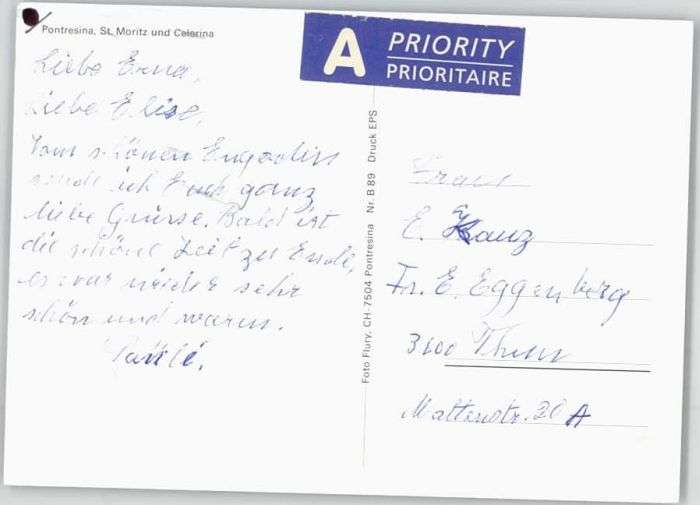 Pontresina, St. Moritz und Celerina
Liebe Erna,
Liebe Elise,
Vom schönen Engadin
sende ich Euch ganz
liebe Grüsse. Bald ist
die schöne Zeit zu Ende,
es war wieder sehr
schön und warm.
A PRIORITY
PRIORITAIRE
Foto Flury, CH-7504 Pontresina Nr. B 89 Druck EPS
Frau
E. Kauz
Fr. E. Eggenberg
3600 Thun
Mattenstr. 20 A